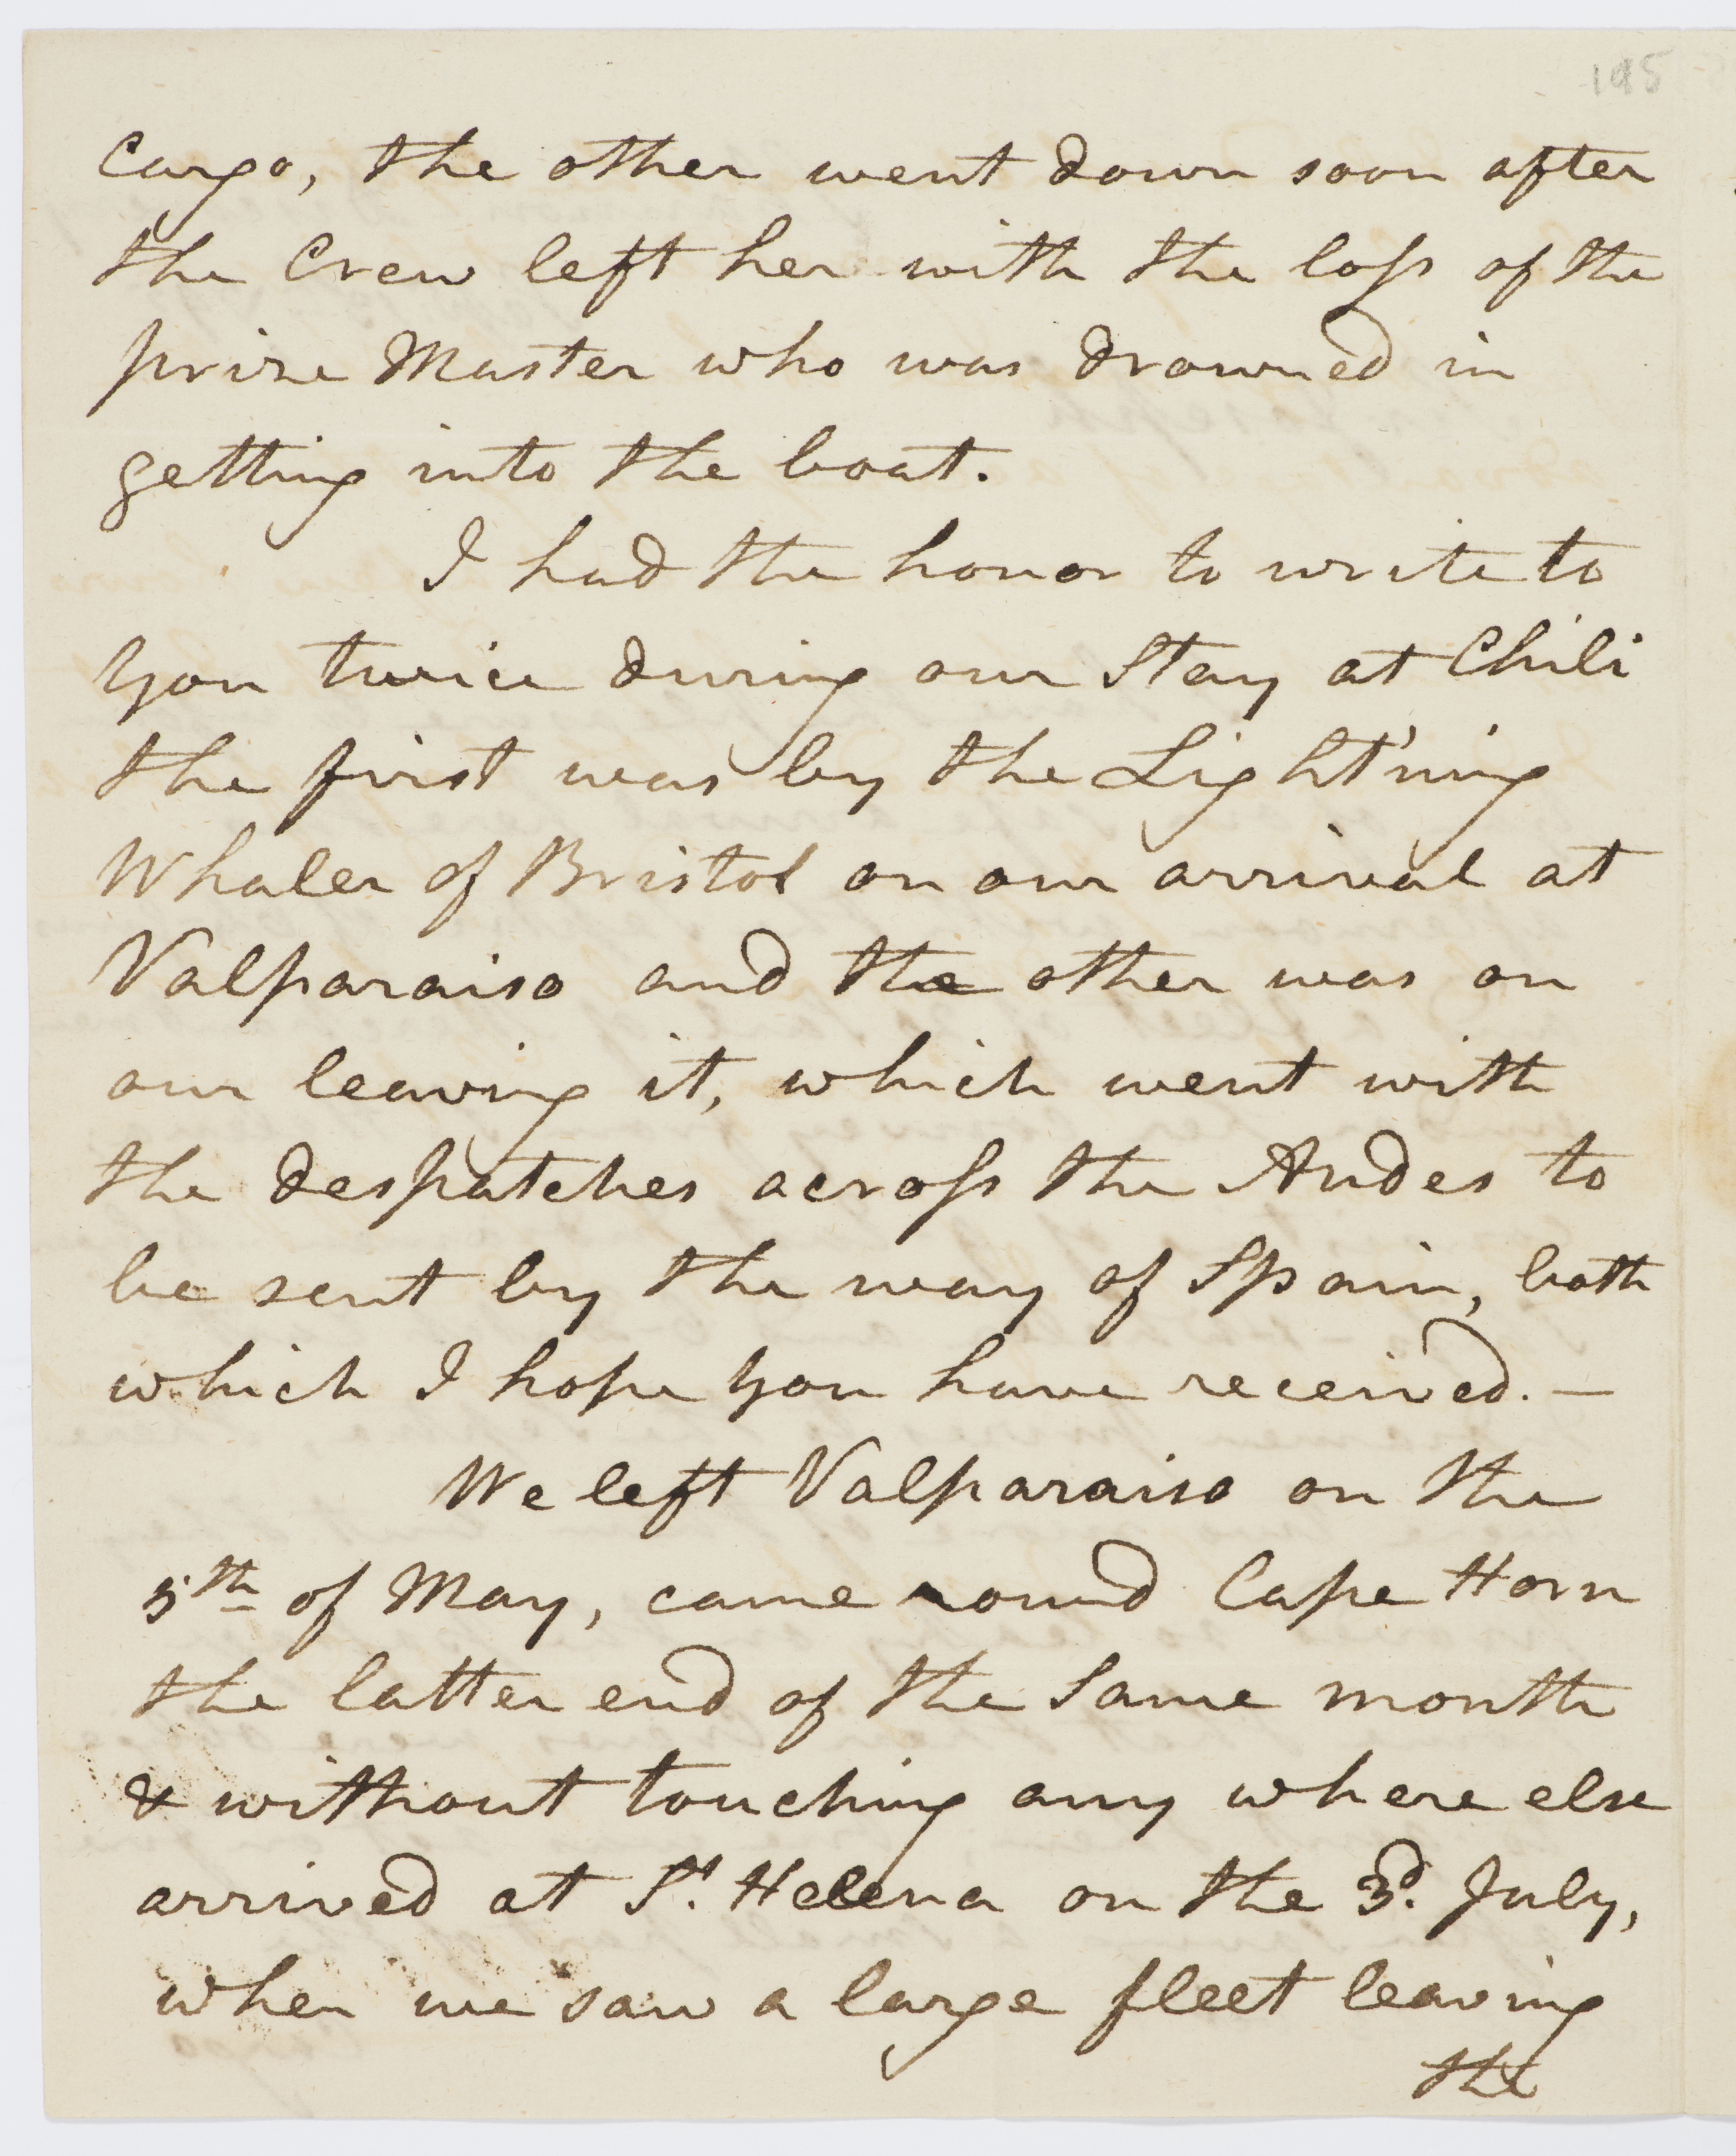 195
Cargo, the other went down soon after
the Crew left her with the loſs of the
prize Master who was drowned in
getting into the boat.
I had the honor to write to
you twice during our Stay at Chili
the first was by the Light'ning
Whaler of Bristol on our arrival at
Valparaiso and the other was on
our leaving it, which went with
the despatches acroſs the Andes to
be sent by the way of Spain, both
which I hope you have received. —
We left Valparaiso on the
5th of May, came round Cape Horn
the latter end of the Same month
& without touching any where else
arrived at St. Helena on the 3d. July,
when we saw a large fleet leaving
the